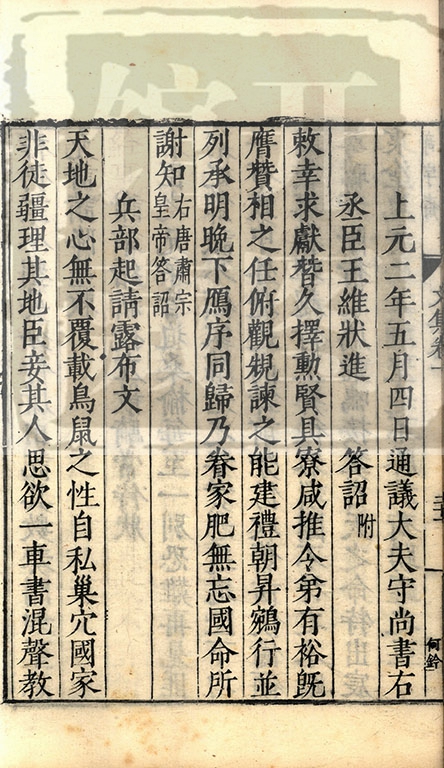 上元二年五月四日通議大夫守尚書右
丞臣王維狀進 答詔附
敕幸求獻替久擇勳賢具寮咸推令弟有裕既
膺贊相之任俯觀規諫之能建禮朝昇鵷行並
列承明晚下鴈序同歸乃眷家肥無忘國命所
謝知右唐肅宗皇帝答詔
兵部起請露布文
天地之心無不覆載鳥鼠之性自私巢穴國家
非徒疆理其地臣妾其人思欲一車書混聲教
何鈴